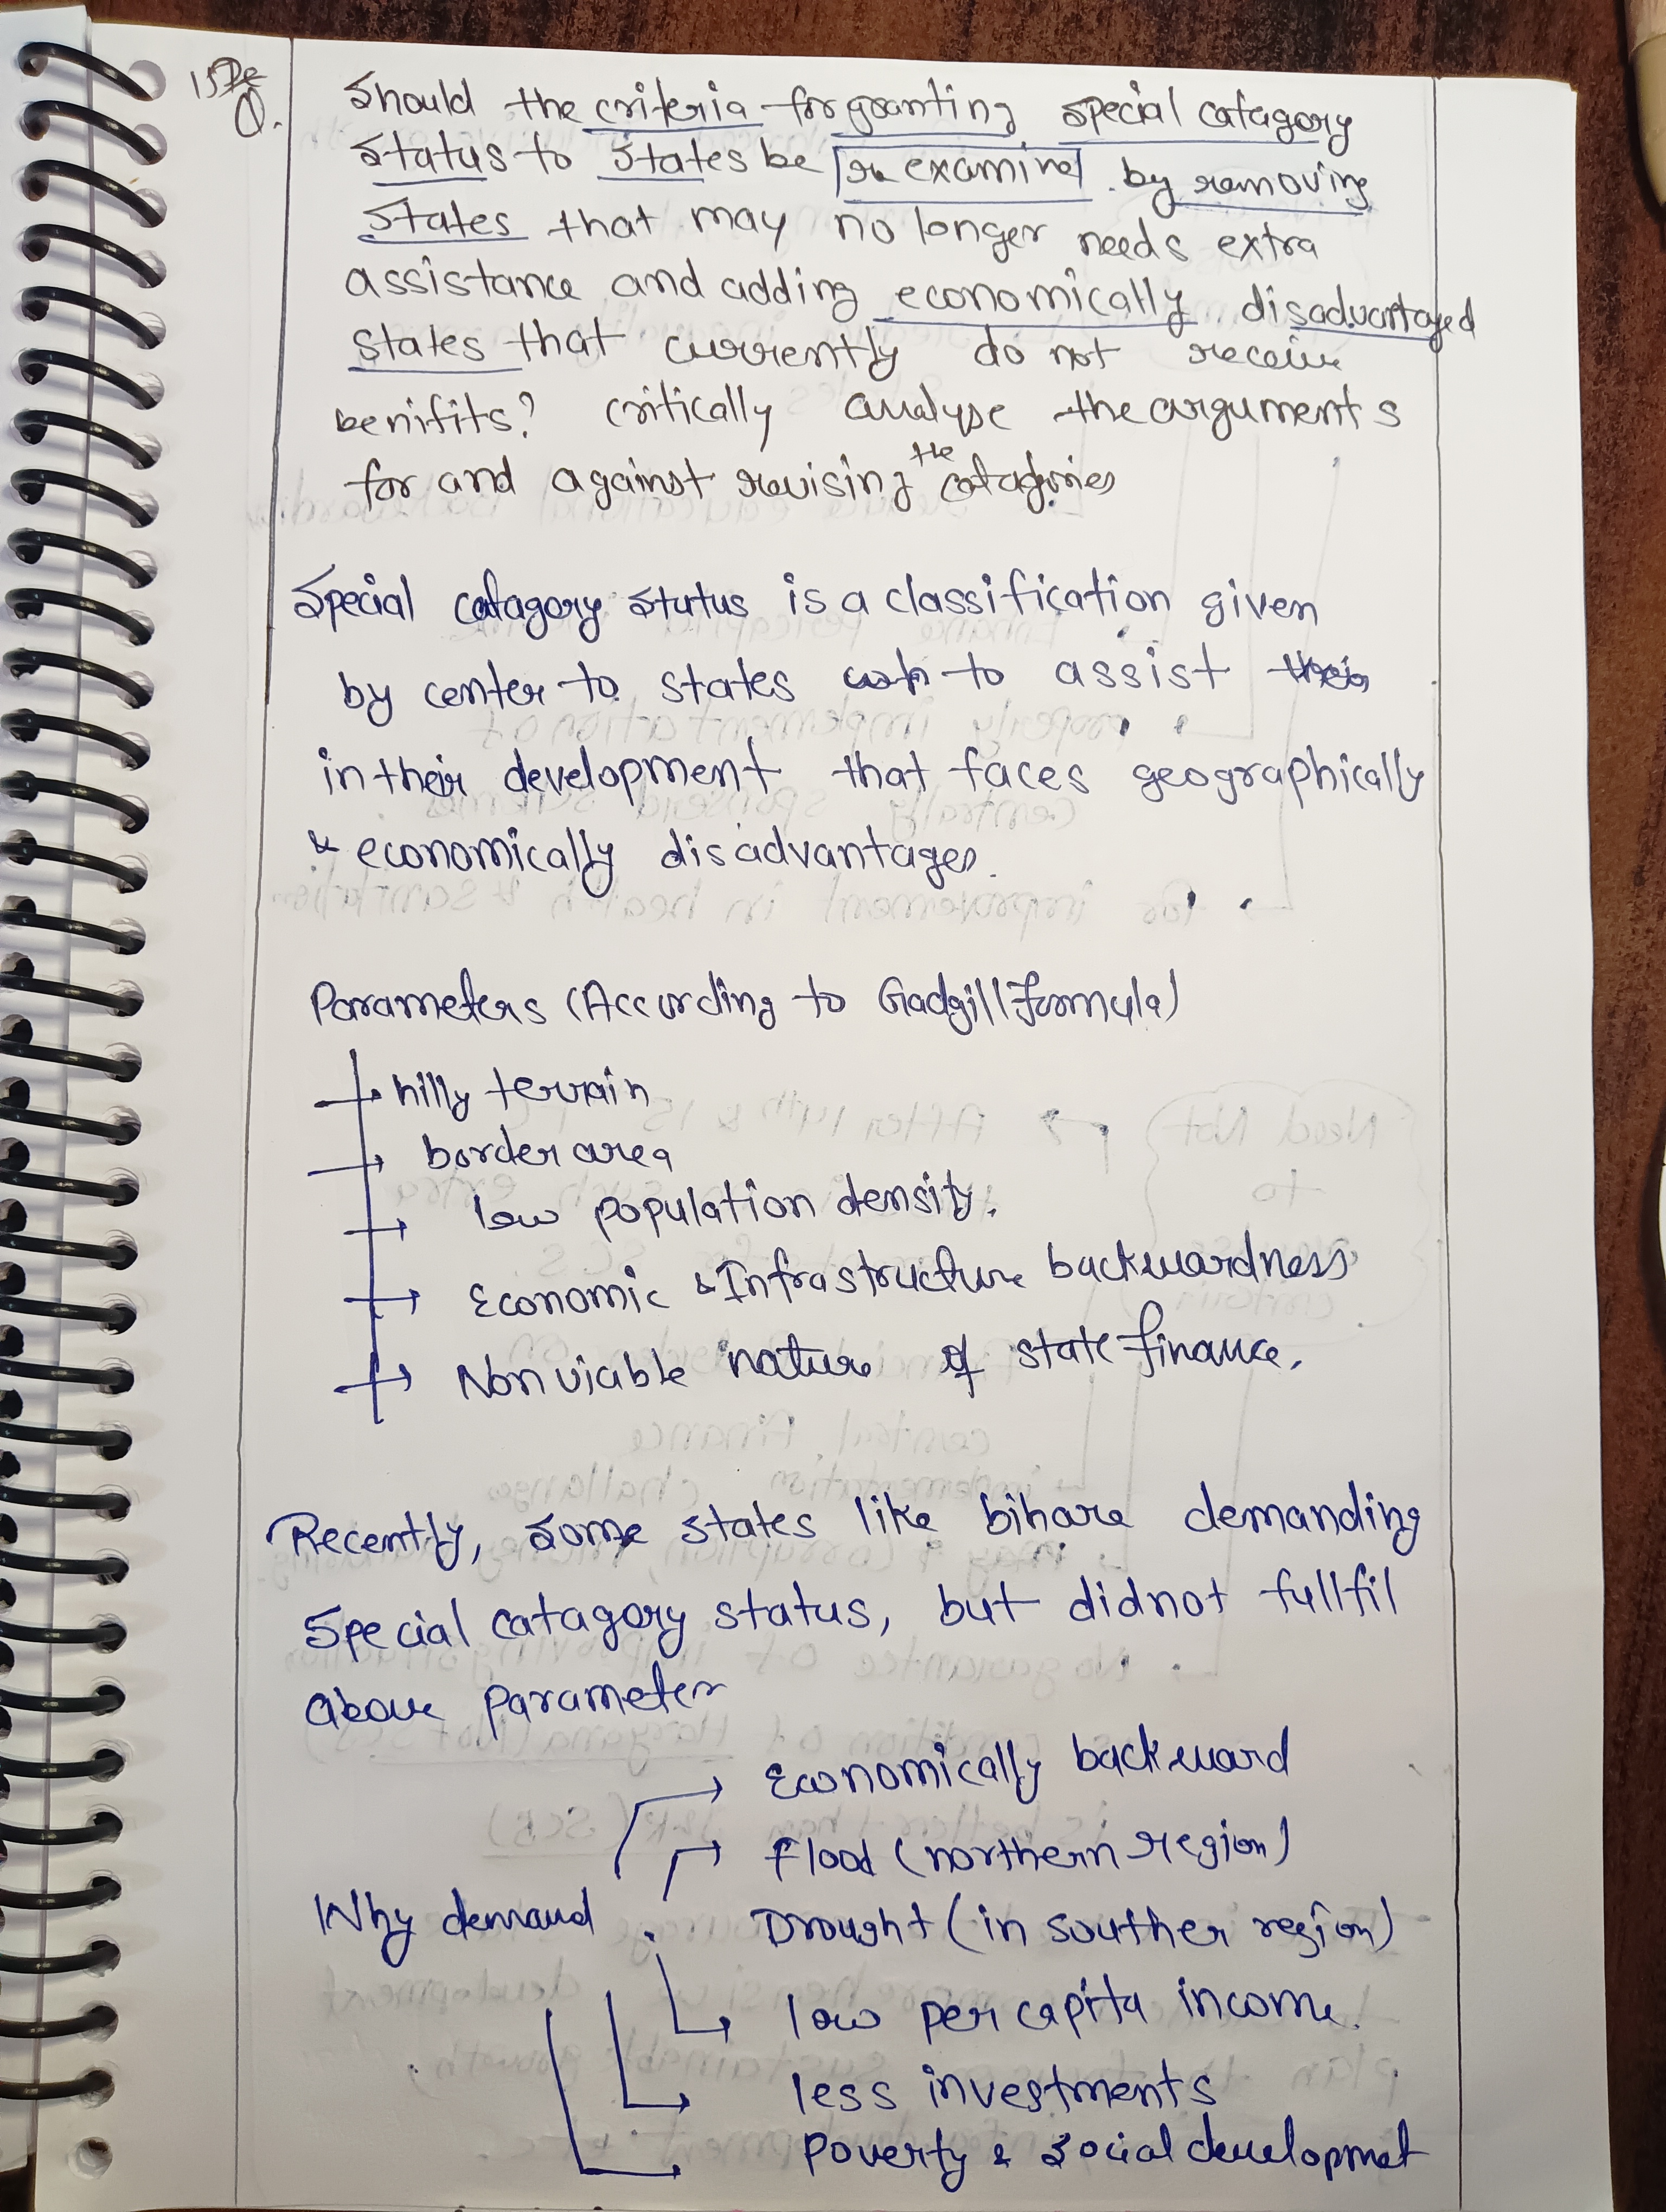 15 Dec
Q. Should the criteria for granting special catagory
status to states be re examine by removing
states that may no longer needs extra
assistance and adding economically disadvantaged
states that currently do not receive
benifits? critically analyse the arguments
for and against revising the catagories
Special catagory status is a classification given
by center to states to assist
in their development that faces geographically
& economically disadvantages.
Parameters (According to Gadgill formula)
hilly terrain
border area
low population density.
Economic & Infrastructure backwardness
Non viable nature of state finance.
Recently, some states like bihare demanding
special catagory status, but didnot fullfil
above parameter
Economically backward
Flood (northern region)
Why demand
Drought (in souther region)
low per capita income.
less investments
Poverty & social developmet